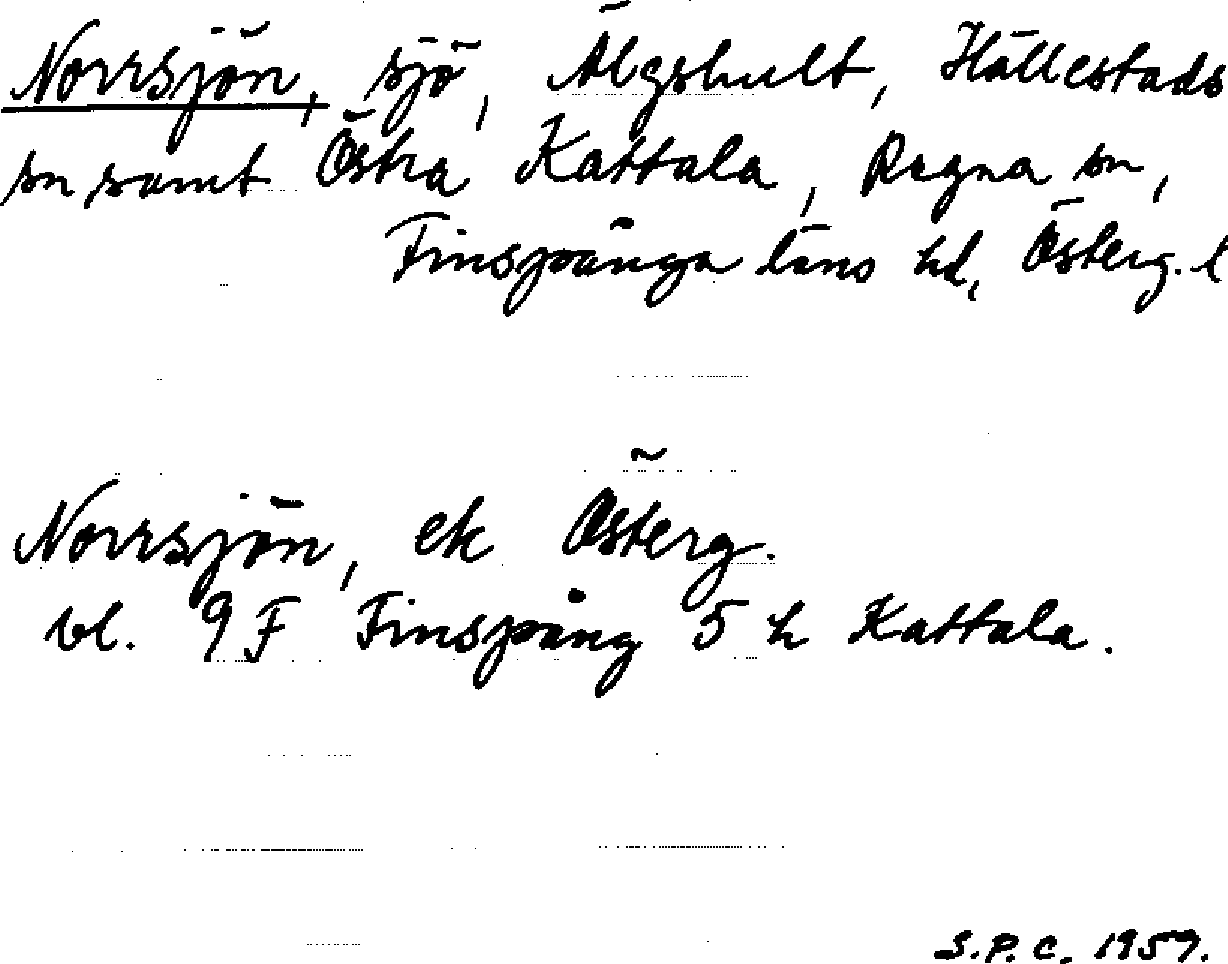 Norrsjön, sjö, Älgshult, Hällestads
sn samt Östra Kattala, Regna sn,
Finspånga läns hd, Österg. l
Norrsjön, ek Österg.
bl. 9F Finspång 5 h Kattala.
S.P.C. 1959.